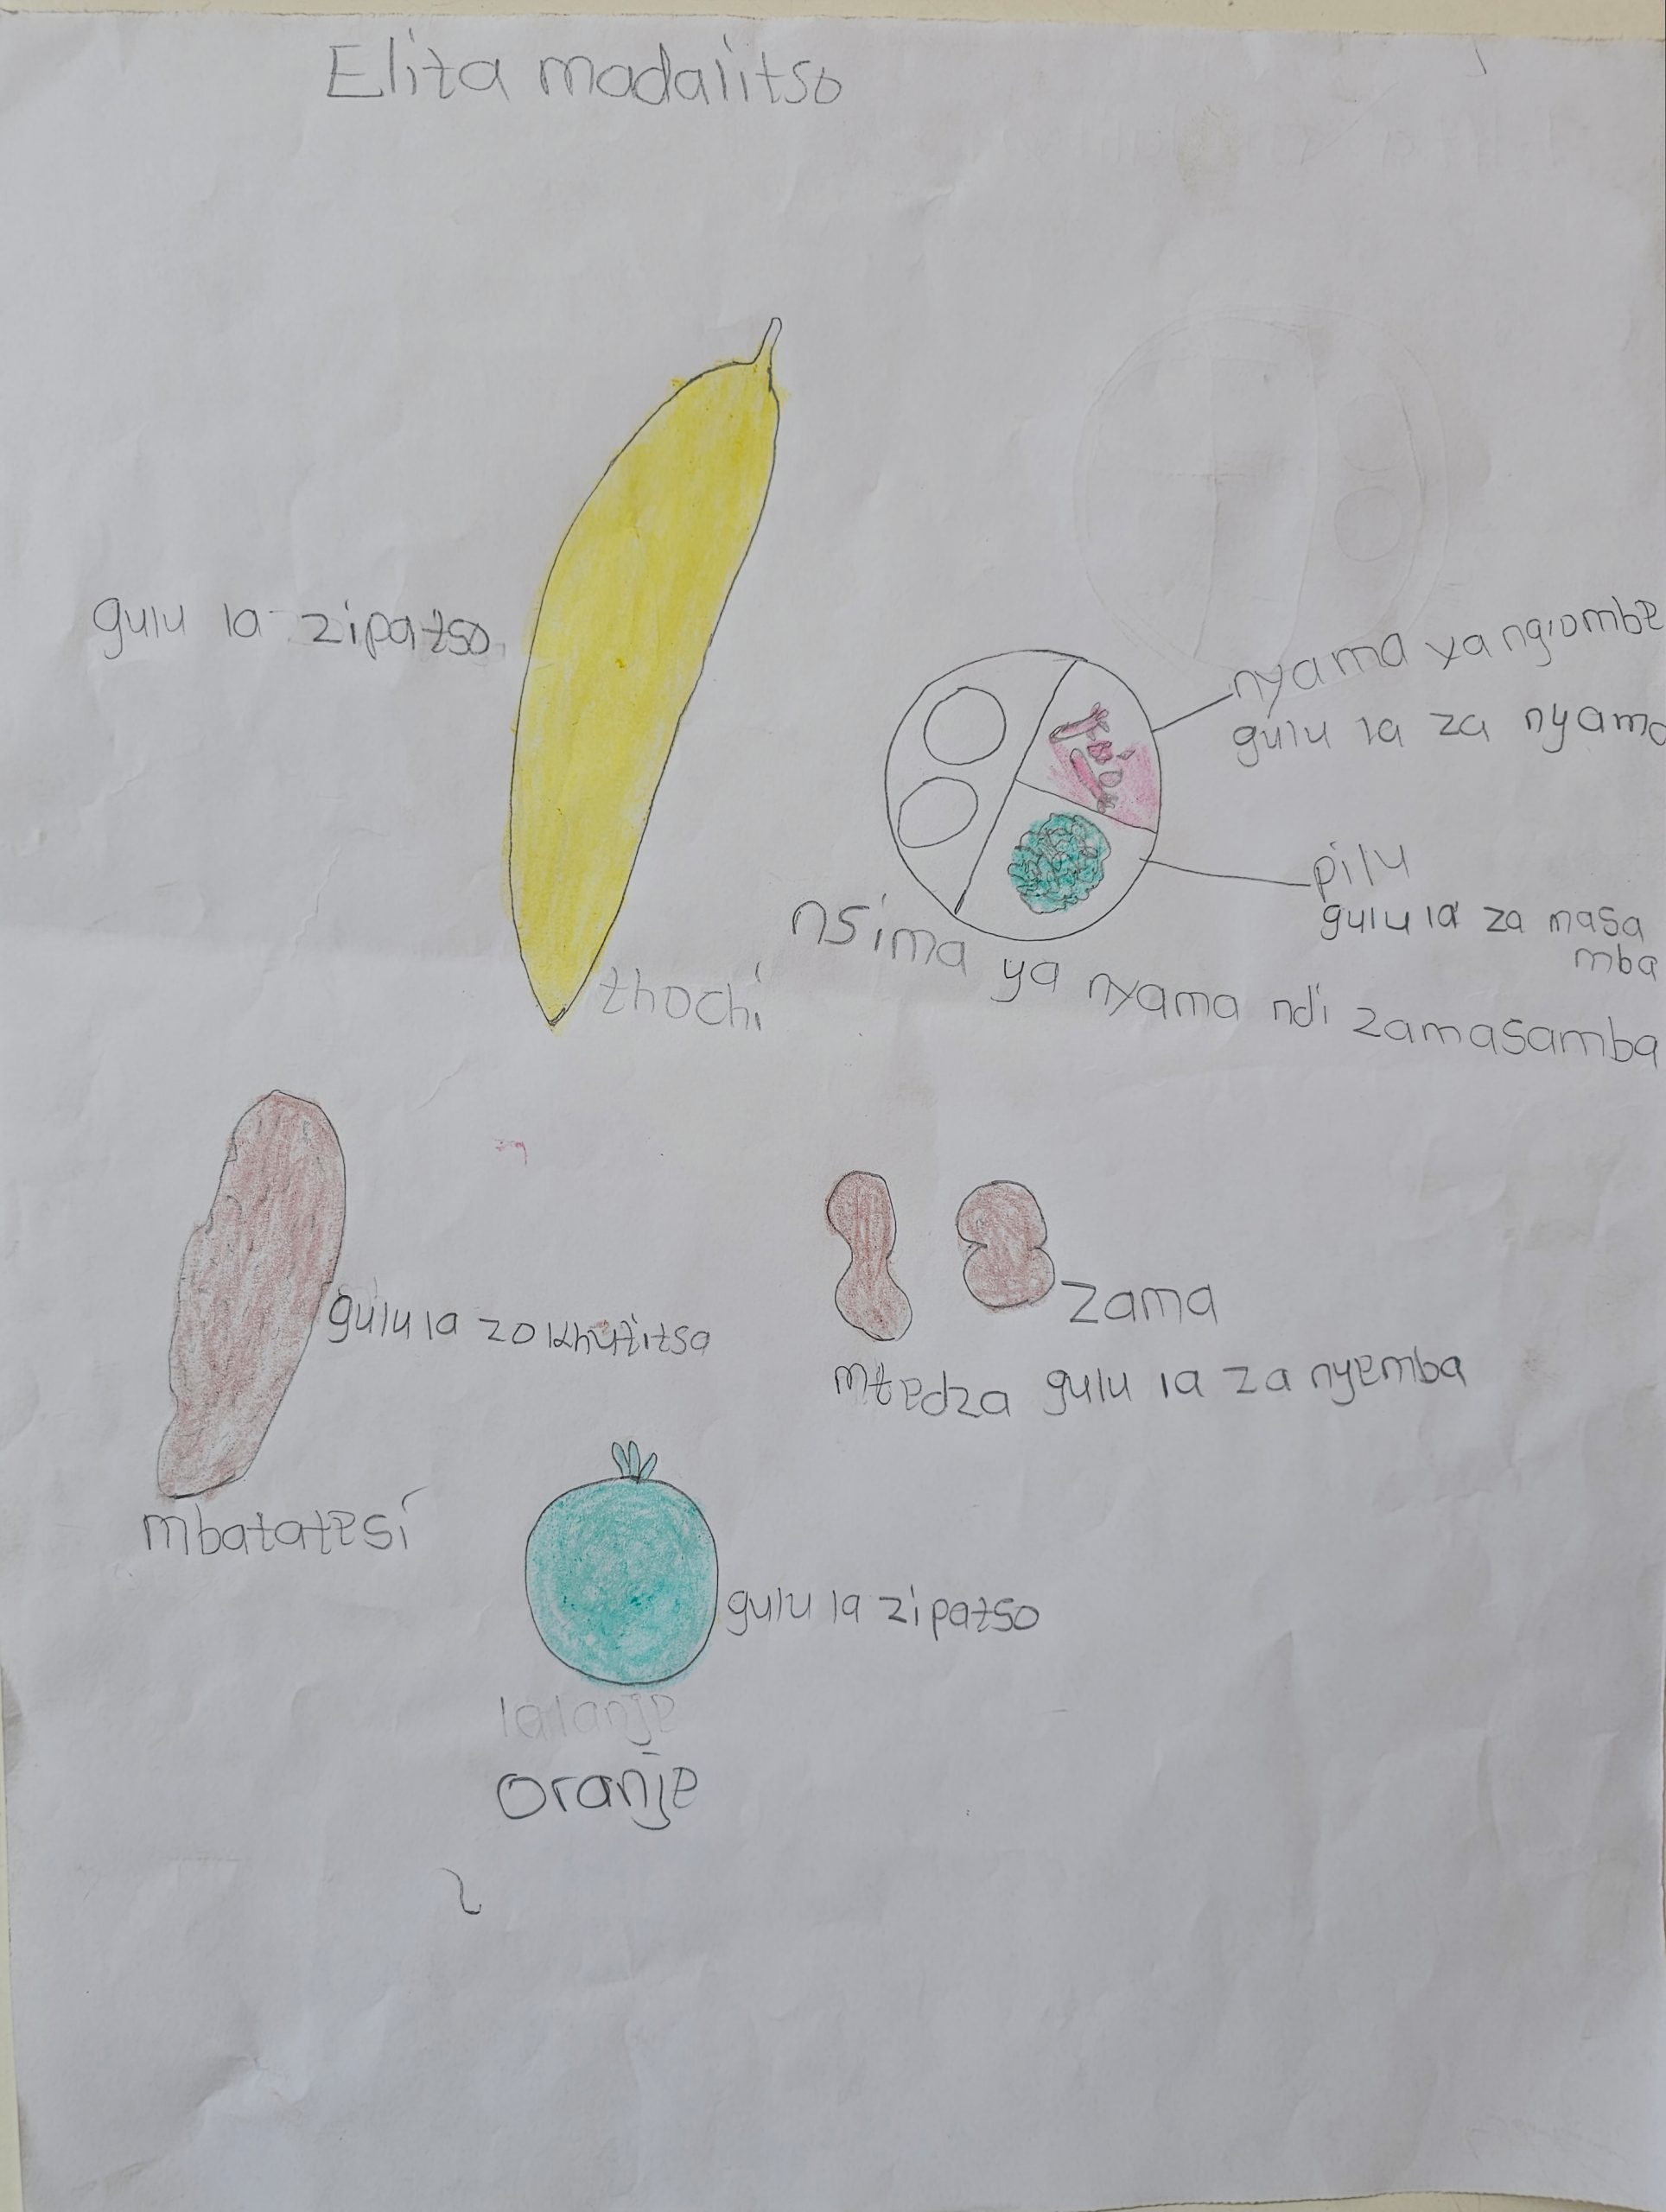 Elita madalitso
gulu la zipatso
thochi
nyama yang'ombe
gulu la za nyama
pilu
gulu la za masa
mba
nsima ya nyama ndi zamasamba
gulu la zokhutitsa
mbatatesi
zama
mtedza gulu la za nyemba
gulu la zipatso
lalanje
oranje